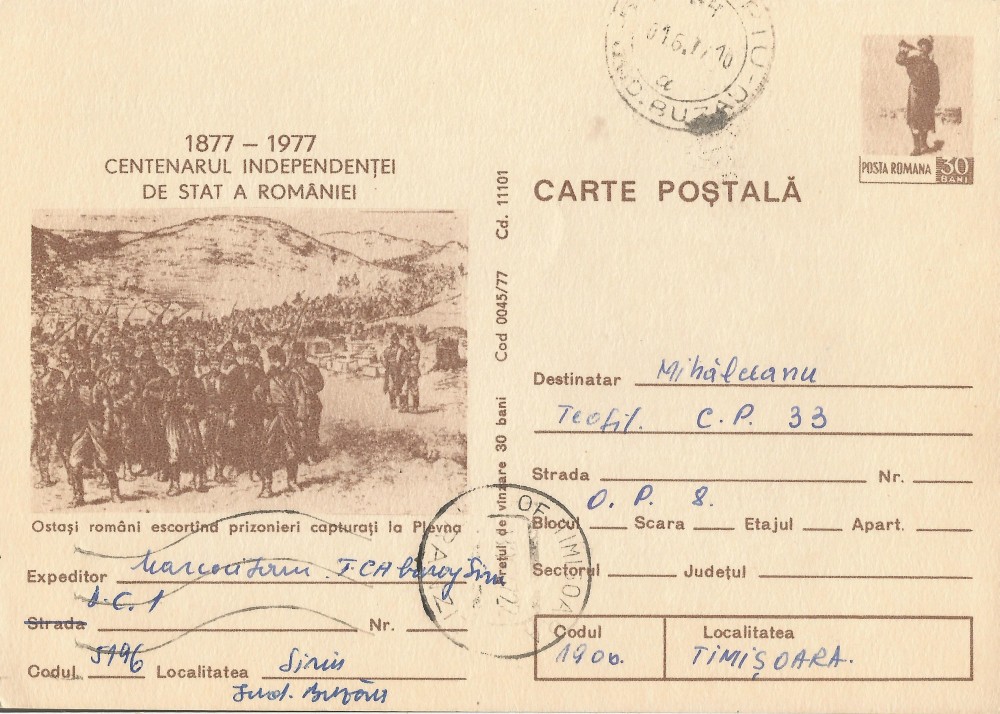 1877 – 1977
CENTENARUL INDEPENDENȚEI
DE STAT A ROMÂNIEI
Ostași români escortind prizonieri capturați la Plevna
Expeditor
D.C. 1
Strada Nr.
Codul 5196 Localitatea Siriu
Jud. Buzău
prețul de vînzare 30 bani Cod 0045/77 Cd. 11101
CARTE POȘTALĂ
POSTA ROMANA 30 BANI
JUD. BUZĂU
Destinatar Mihălceanu
Teofil. C.P. 33
Strada Nr.
O. P. 8.
Blocul Scara Etajul Apart.
Sectorul Județul
Codul Localitatea
1900. TIMIȘOARA.